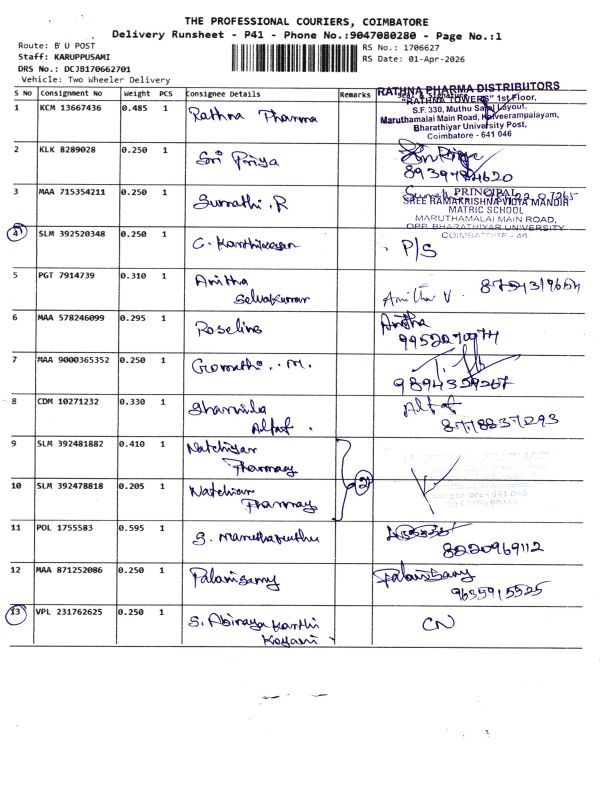 THE PROFESSIONAL COURIERS, COIMBATORE
Delivery Runsheet - P41 - Phone No.:9047080280 - Page No.:1
Route: B U POST
Staff: KARUPPUSAMI
DRS No.: DCJB170662701
Vehicle: Two Wheeler Delivery
RS No.: 1706627
RS Date: 01-Apr-2026
S No Consignment No Weight PCS Consignee Details Remarks Seal & Signature
RATHNA PHARMA DISTRIBUTORS
"RATHNA TOWERS" 1st Floor,
S.F. 330, Muthu Layout,
Maruthamalai Main Road, Kalveerampalayam,
Bharathiyar University Post,
Coimbatore - 641 046
1 KCM 13667436 0.485 1 Rathna Pharma
2 KLK 8289028 0.250 1 Sri Priya
3 MAA 715354211 0.250 1 Sumathi. R
PRINCIPAL
SREE RAMAKRISHNA VIDYA MANDIR
MATRIC SCHOOL
MARUTHAMALAI MAIN ROAD,
OPP. BHARATHIYAR UNIVERSITY
COIMBATORE - 46
4 SLM 392520348 0.250 1 P/S
5 PGT 7914739 0.310 1 Anitha
Selvakumar Anitha V
6 MAA 578246099 0.295 1 Roseline Anitha
7 MAA 9000365352 0.250 1 Gomathi. M.
8 CDM 10271232 0.330 1 Sharmila
Altaf. Altaf
8778837293
9 SLM 392481882 0.410 1 Natchiyar
Pharmacy
2
10 SLM 392478818 0.205 1 Natchiar
Pharmacy
11 POL 1755583 0.595 1 S. Marutha muthu
8220969112
12 MAA 871252086 0.250 1 Palanisamy Palanisamy
9655915525
13 VPL 231762625 0.250 1 S. Abinaya Kanthi CN